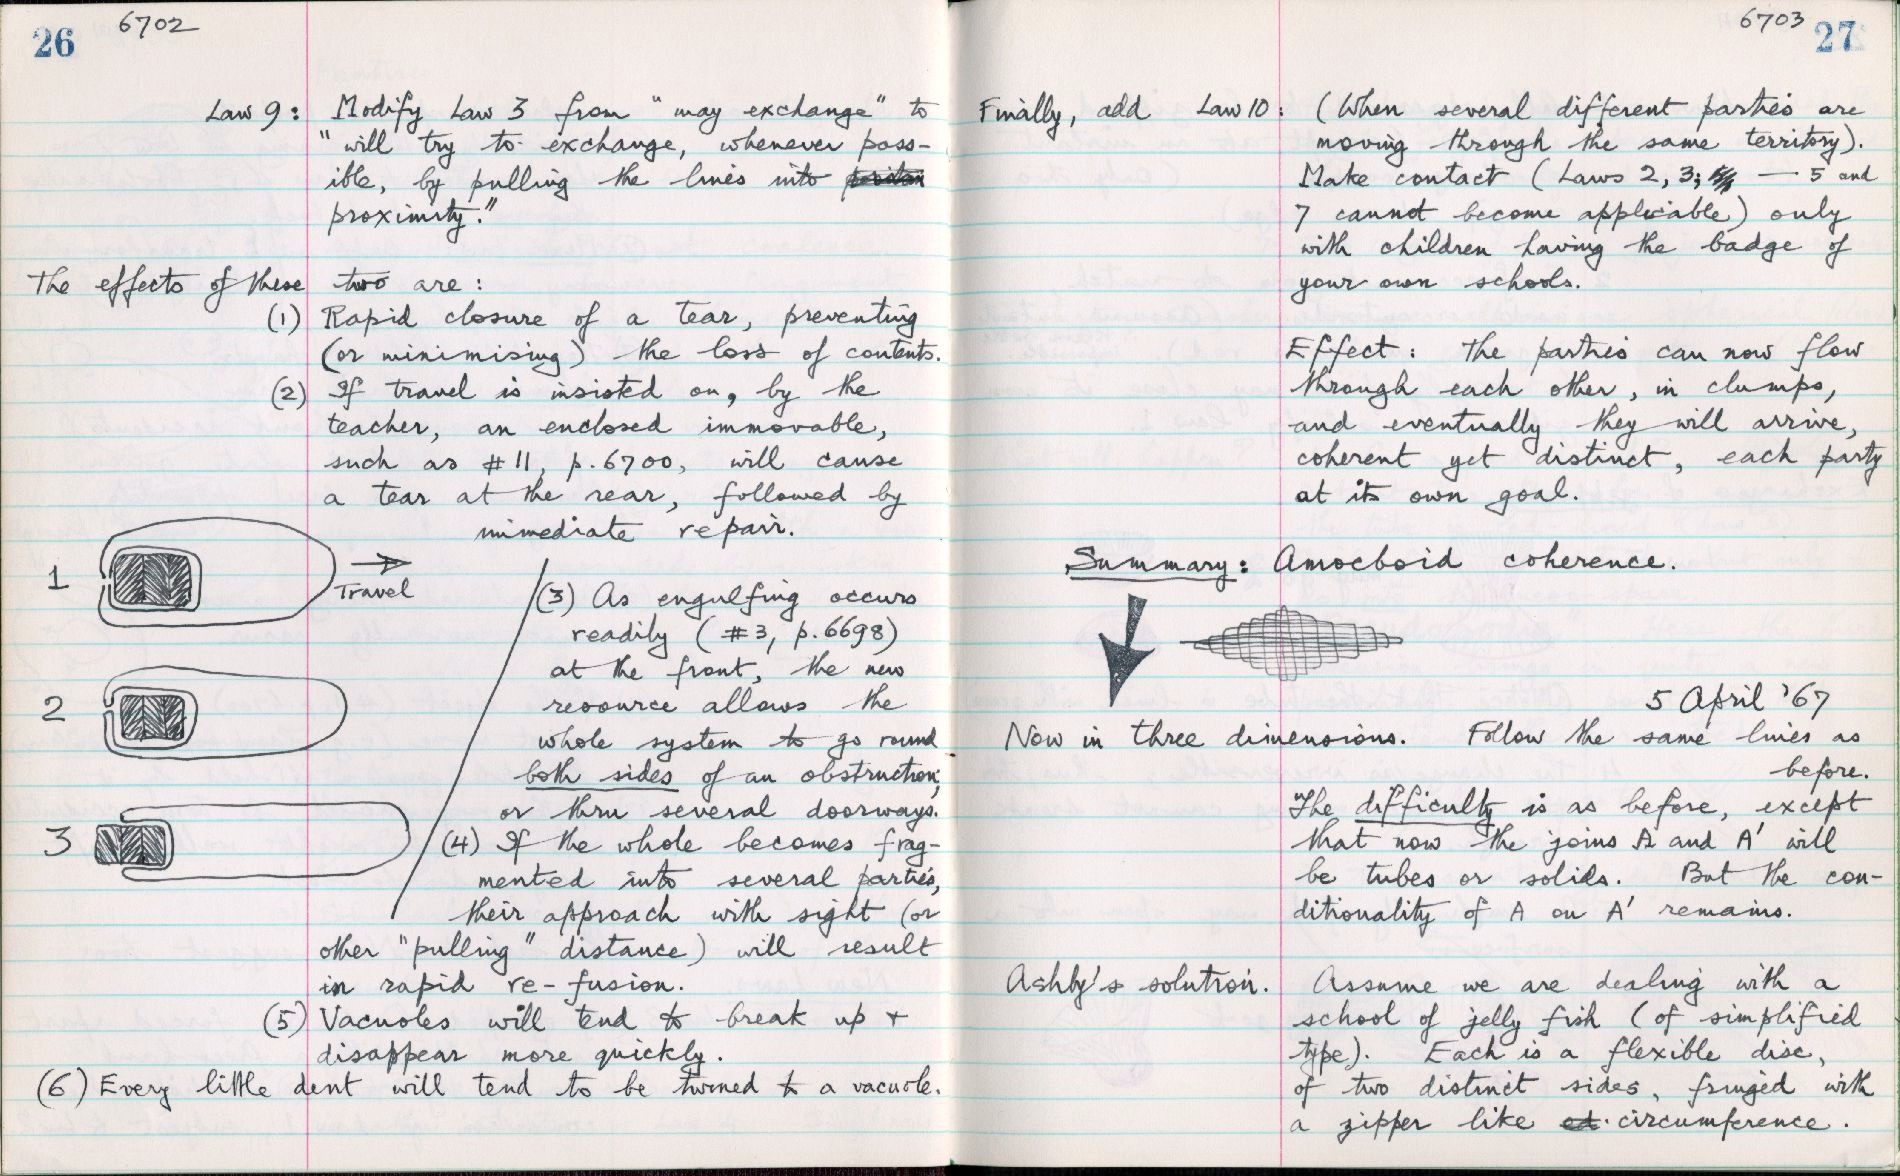 26
6702
Law 9: Modify Law 3 from "may exchange" to
"will try to exchange, whenever poss-
ible, by pulling the lines into
proximity."
The effects of these two are:
(1) Rapid closure of a tear, preventing
(or minimising) the loss of contents.
(2) If travel is insisted on, by the
teacher, an enclosed immovable,
such as #11, p.6700, will cause
a tear at the rear, followed by
immediate repair.
1
Travel
2
3
(3) As engulfing occurs
readily (#3, p.6698)
at the front, the new
resource allows the
whole system to go round
both sides of an obstruction;
or thru several doorways.
(4) If the whole becomes frag-
mented into several parties,
their approach with sight (or
other "pulling" distance) will result
in rapid re-fusion.
(5) Vacuoles will tend to break up +
disappear more quickly.
(6) Every little dent will tend to be turned to a vacuole.
6703
27
Finally, add Law 10: (When several different parties are
moving through the same territory).
Make contact (Laws 2, 3; — 5 and
7 cannot become applicable) only
with children having the badge of
your own schools.
Effect: The parties can now flow
through each other, in clumps,
and eventually they will arrive,
coherent yet distinct, each party
at its own goal.
Summary: Amoeboid coherence.
5 April '67
Now in three dimensions. Follow the same lines as
before.
The difficulty is as before, except
that now the joins A and A' will
be tubes or solids. But the con-
ditionality of A on A' remains.
Ashby's solution. Assume we are dealing with a
school of jelly fish (of simplified
type). Each is a flexible disc,
of two distinct sides, fringed with
a zipper like circumference.